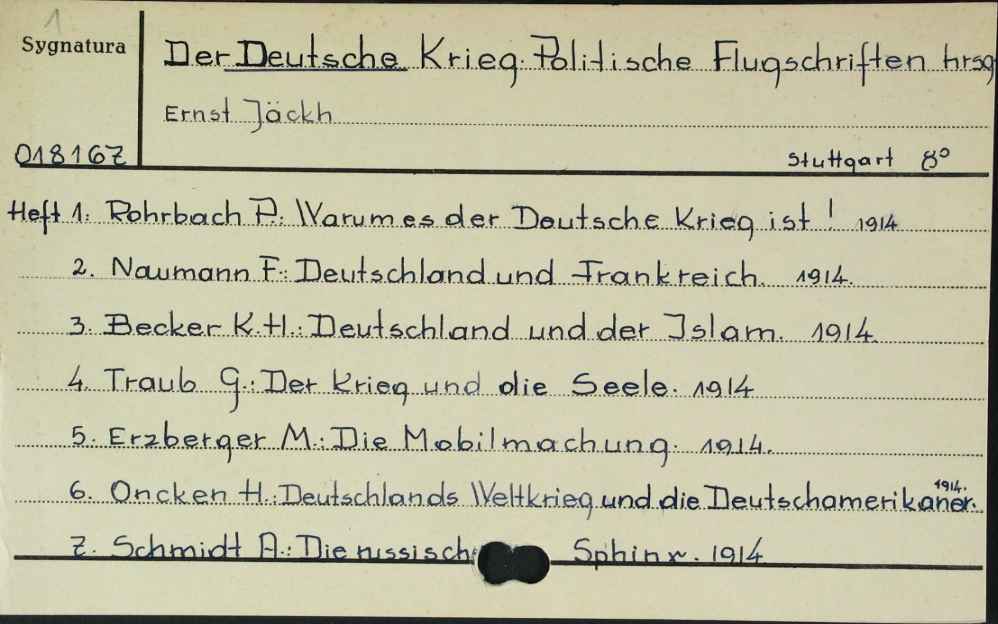 1
Sygnatura
Der Deutsche Krieg. Politische Flugschriften hrsg
Ernst Jäckh
018167
Stuttgart 8°
Heft 1: Rohrbach P.: Warum es der Deutsche Krieg ist! 1914
2. Naumann F.: Deutschland und Frankreich. 1914.
3. Becker K.H.: Deutschland und der Islam. 1914
4. Traub G.: Der Krieg und die Seele. 1914
5. Erzberger M.: Die Mobilmachung. 1914.
6. Oncken H.: Deutschlands Weltkrieg und die Deutschamerikaner. 1914.
7. Schmidt A.: Die russisch Sphinx. 1914